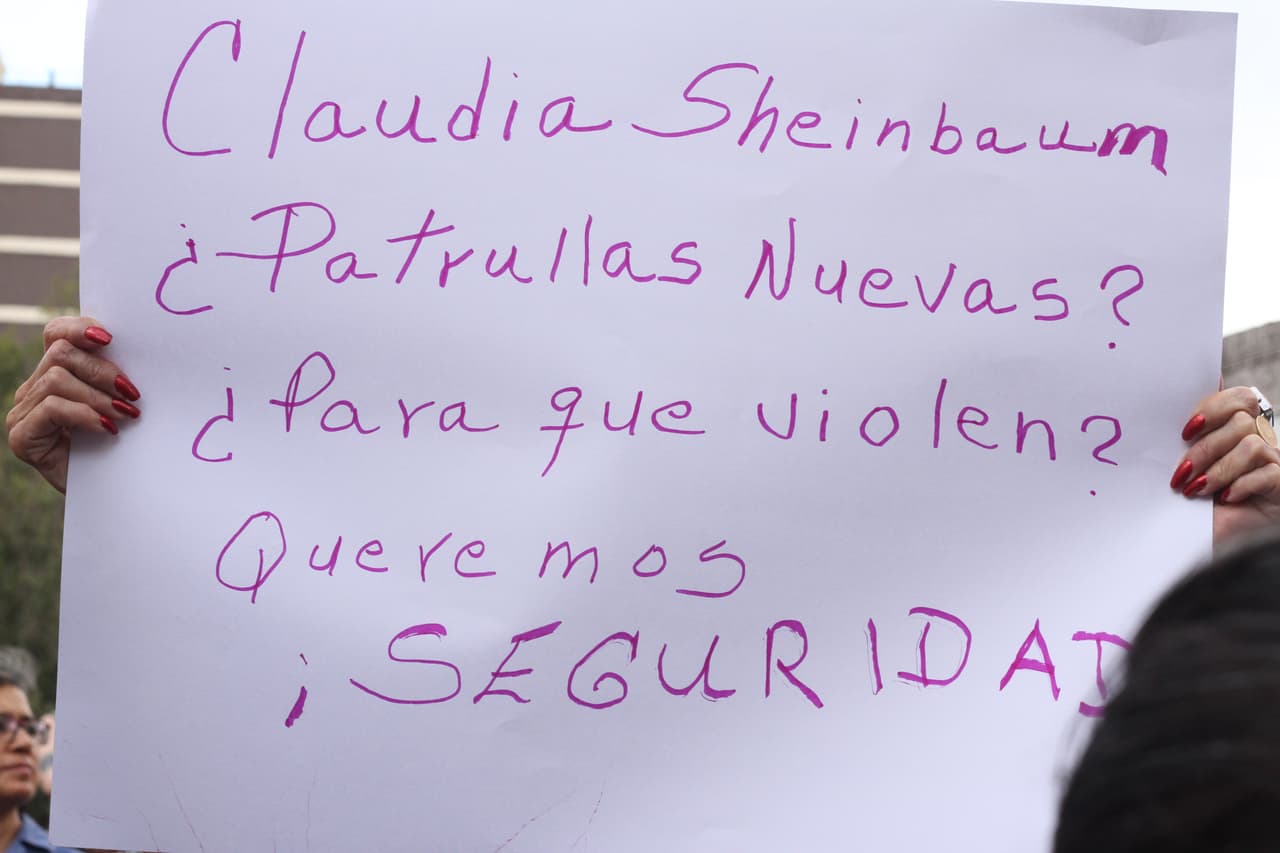 Claudia Sheinbaum
¿Patrullas Nuevas?
¿Para que violen?
Queremos
¡SEGURIDAD